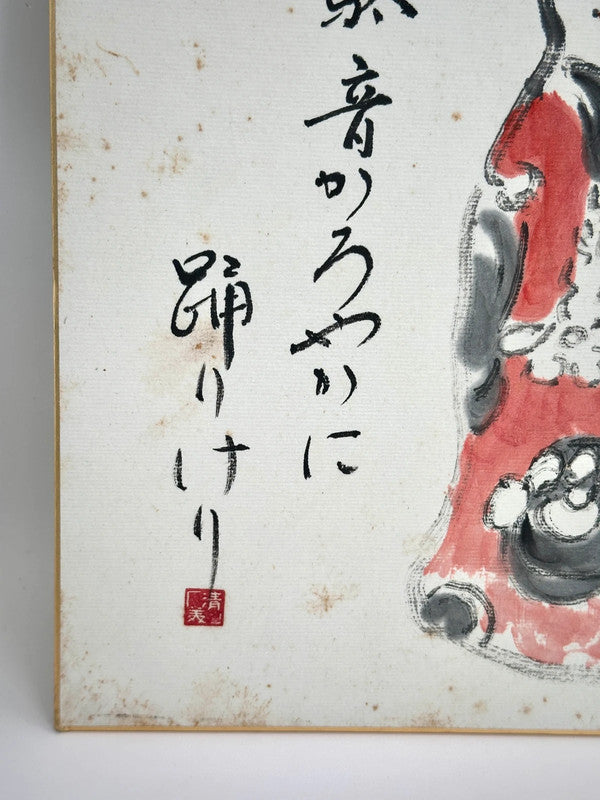 音かろやかに
踊りけり
清美